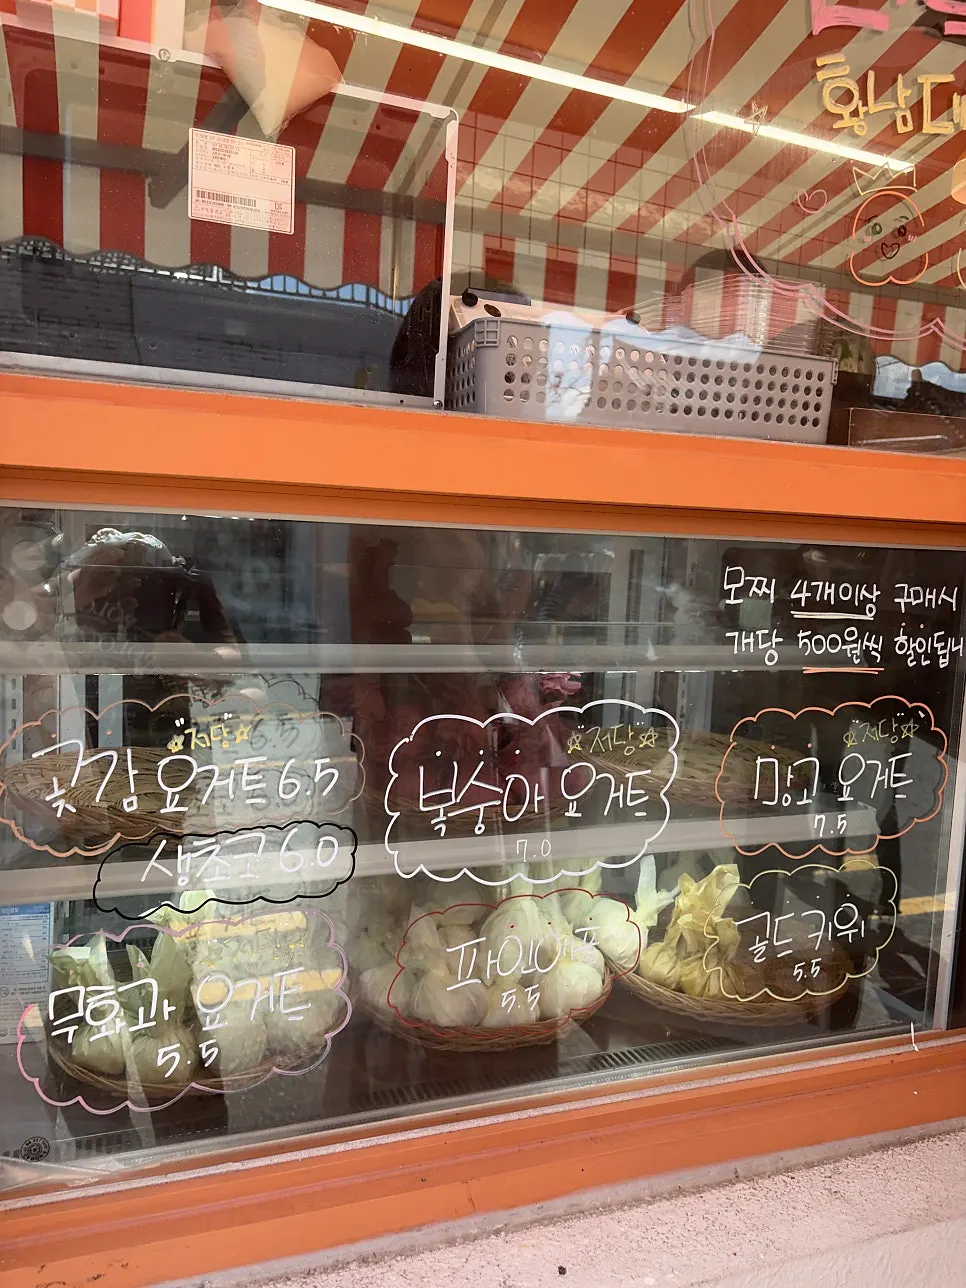 황남대
모찌 4개이상 구매시
개당 500원씩 할인됩니
☆저당☆
곶감 요거트 6.5
생초코 6.0
☆저당☆
복숭아 요거트
7.0
☆저당☆
망고 요거트
7.5
무화과 요거트
5.5
파인애플
5.5
골드키위
5.5